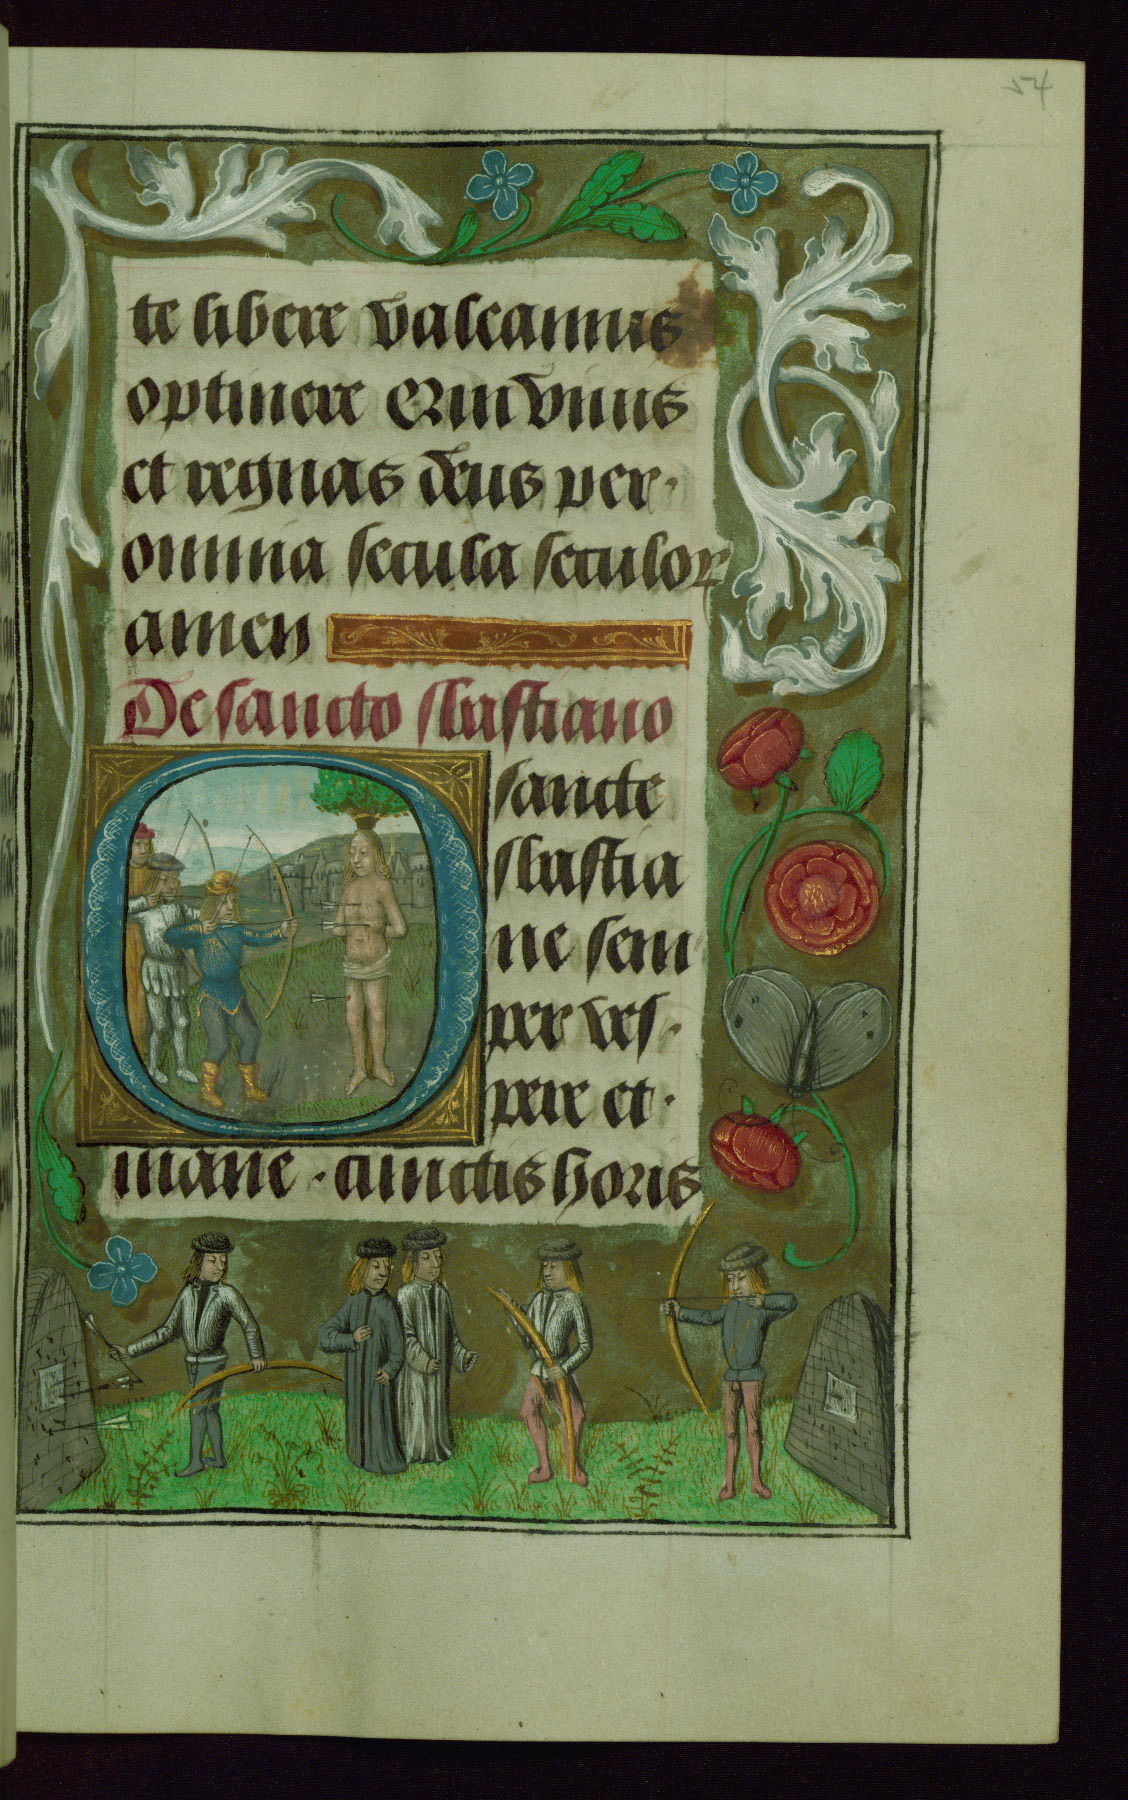 54
te libere valeamus
optinere Qui viuis
et regnas deus per
omnia secula seculor
amen
De sancto sebastiano
O sancte
sebastia
ne sem
per ves
pere et
mane · cunctis horis